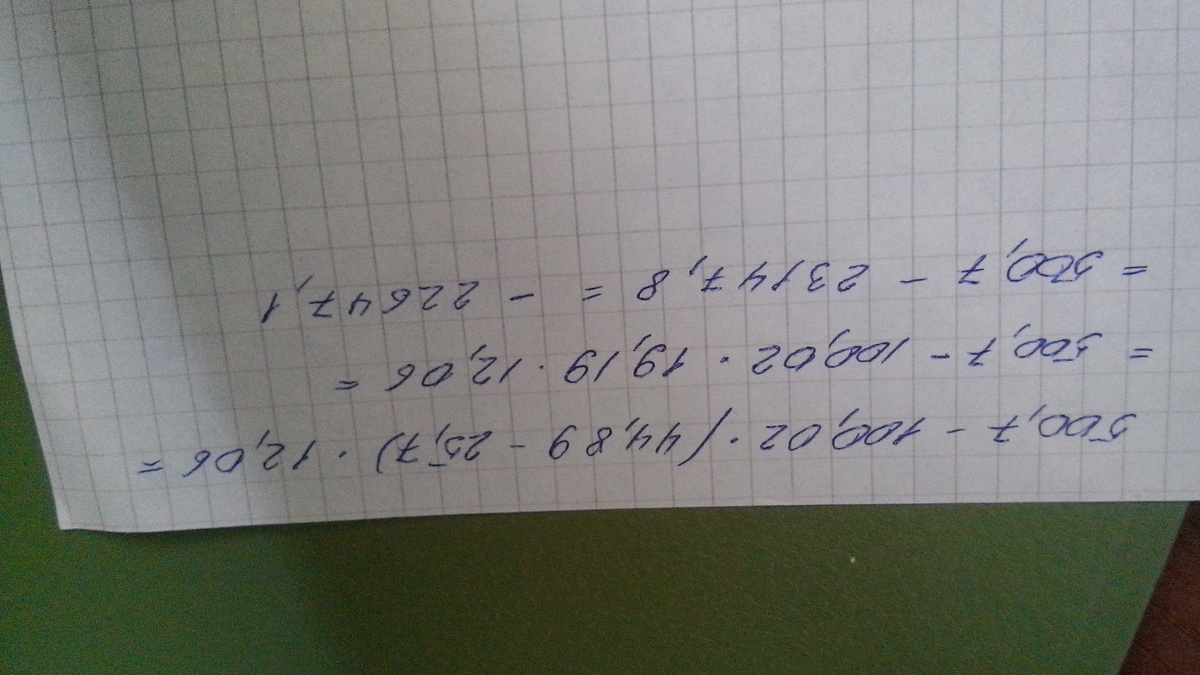 500,7 - 100,02 · (44,89 - 25,7) · 12,06 =
= 500,7 - 100,02 · 19,19 · 12,06 =
= 500,7 - 23147,8 = - 22647,1